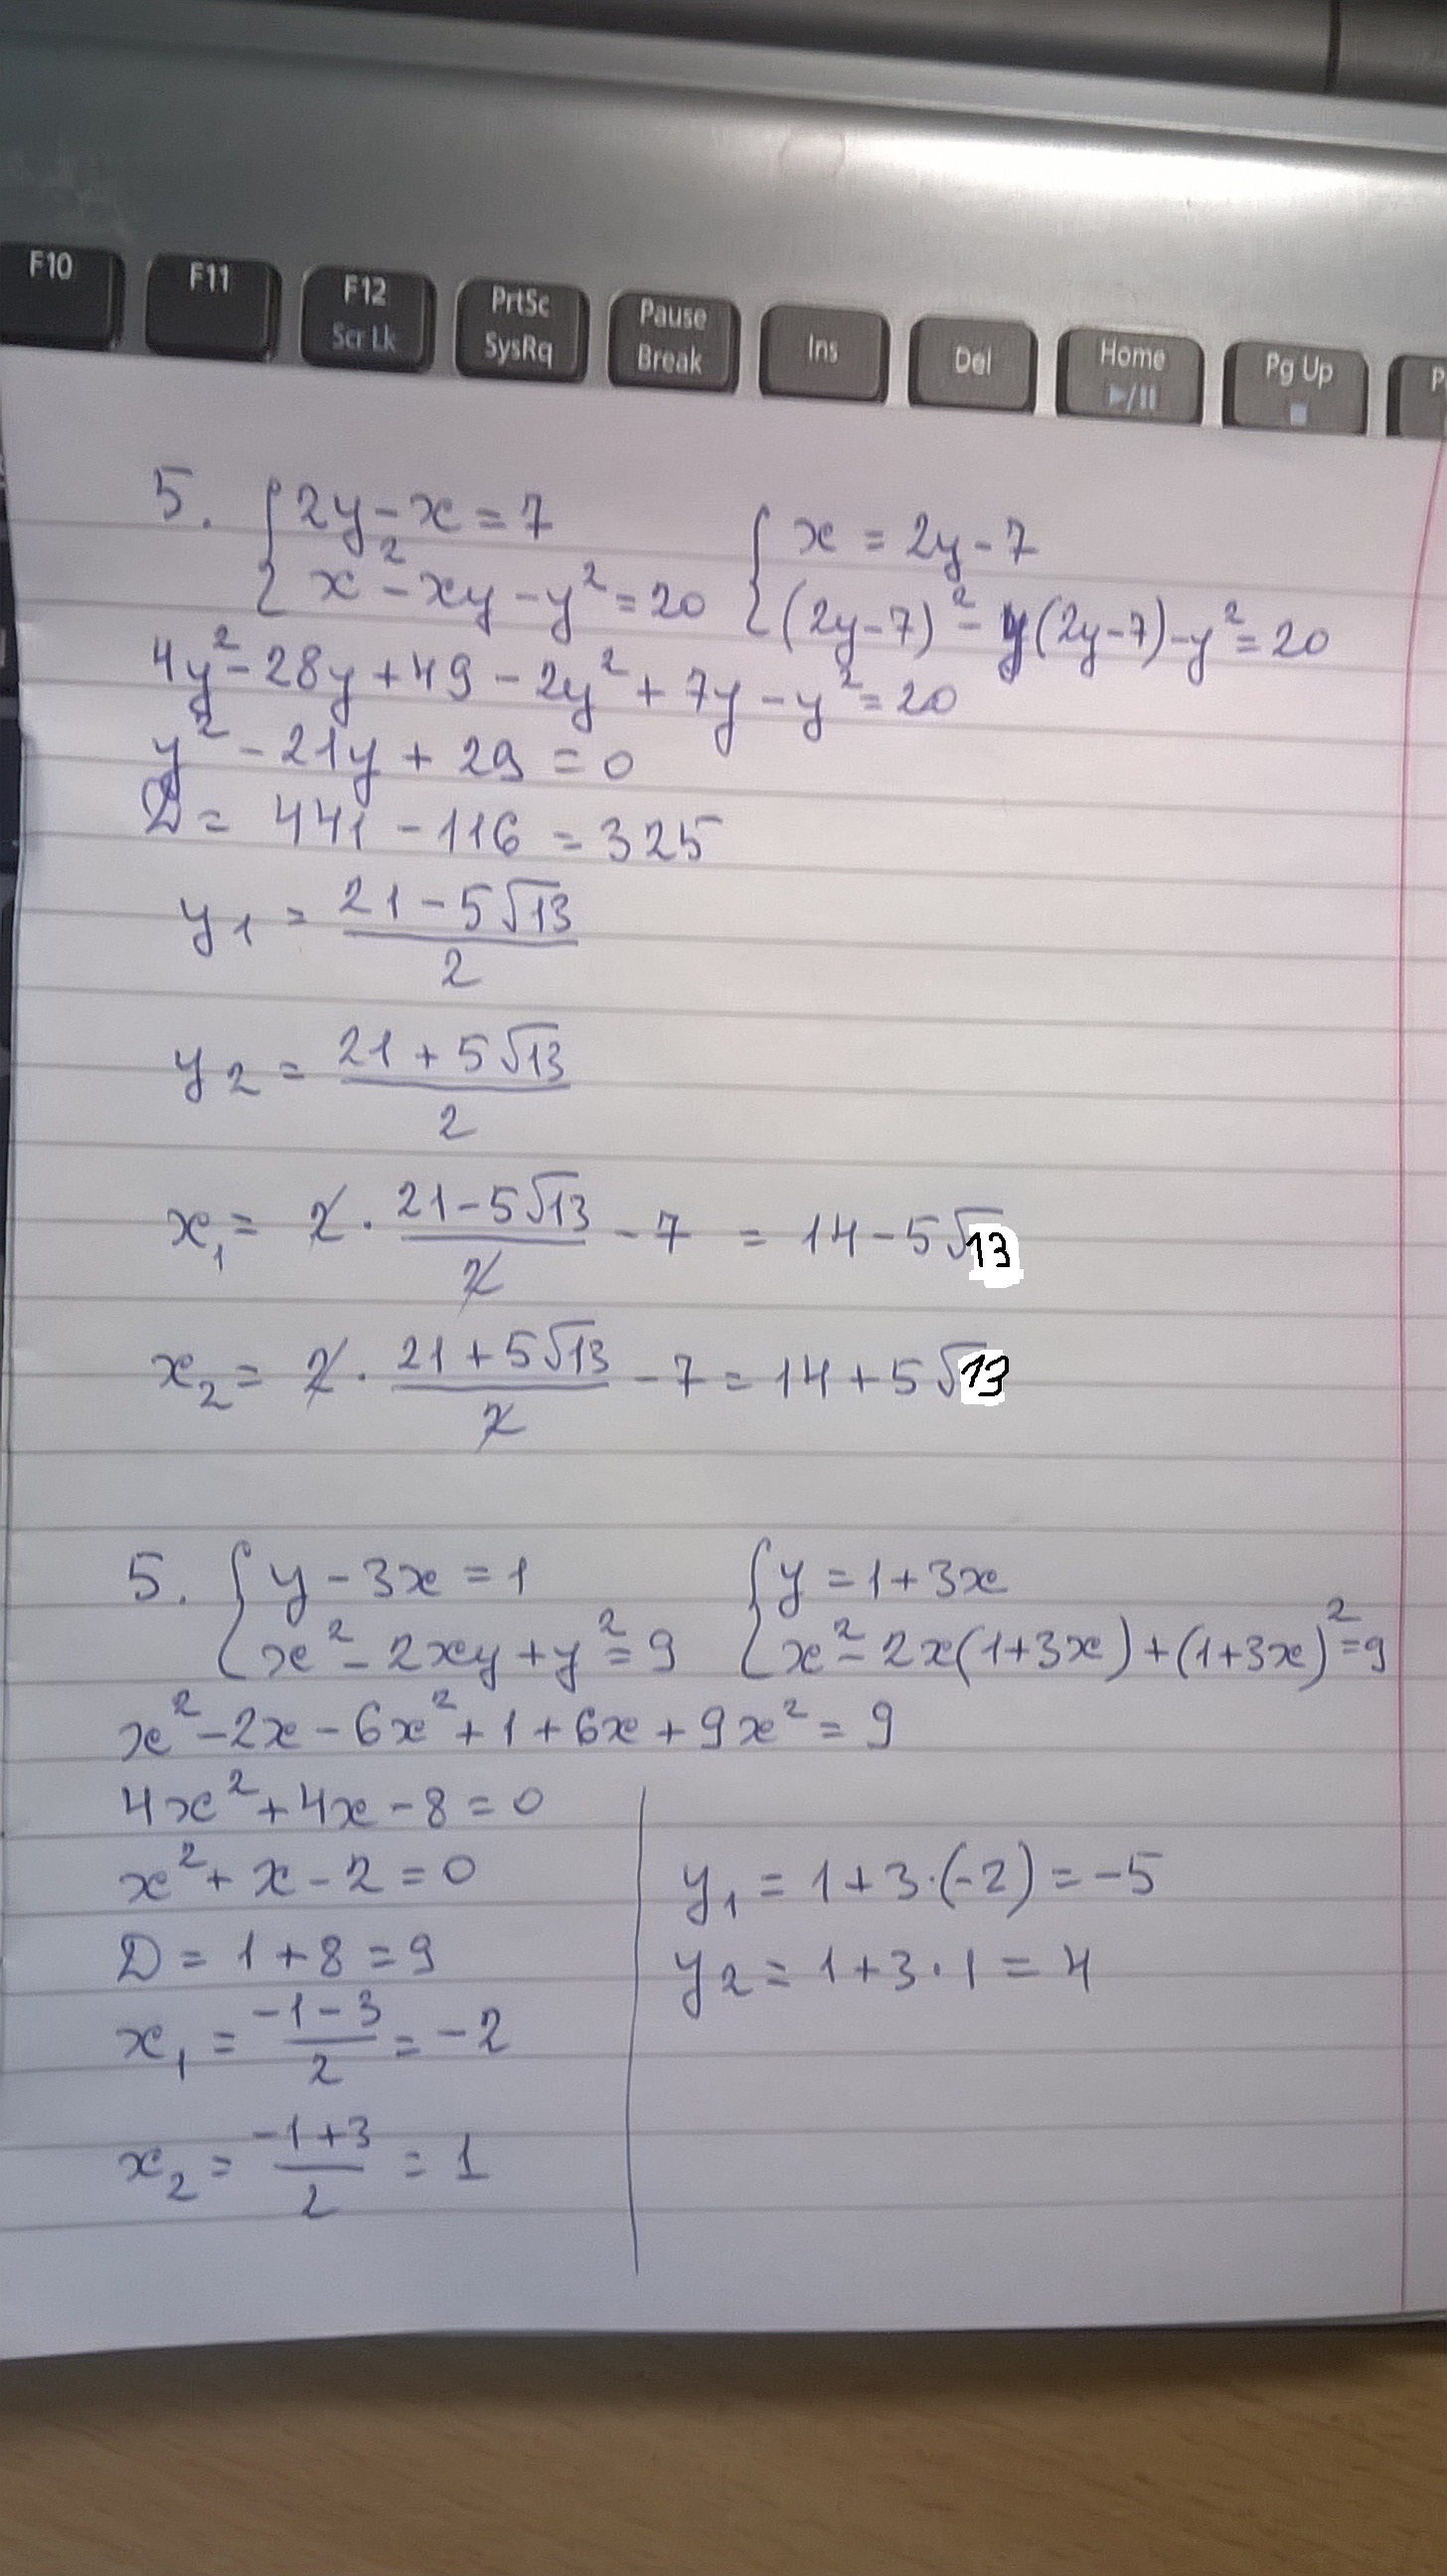 F10 F11 F12 PrtSc Pause Ins Del Home Pg Up P
Scr Lk SysRq Break
5. { 2y - x = 7 { x = 2y - 7
x² - xy - y² = 20 (2y - 7)² - y(2y - 7) - y² = 20
4y² - 28y + 49 - 2y² + 7y - y² = 20
y² - 21y + 29 = 0
D = 441 - 116 = 325
y₁ = (21 - 5√13)/2
y₂ = (21 + 5√13)/2
x₁ = 2 · (21 - 5√13)/2 - 7 = 14 - 5√13
x₂ = 2 · (21 + 5√13)/2 - 7 = 14 + 5√13
5. { y - 3x = 1 { y = 1 + 3x
x² - 2xy + y² = 9 x² - 2x(1 + 3x) + (1 + 3x)² = 9
x² - 2x - 6x² + 1 + 6x + 9x² = 9
4x² + 4x - 8 = 0
x² + x - 2 = 0
D = 1 + 8 = 9
x₁ = (-1 - 3)/2 = -2
x₂ = (-1 + 3)/2 = 1
y₁ = 1 + 3 · (-2) = -5
y₂ = 1 + 3 · 1 = 4